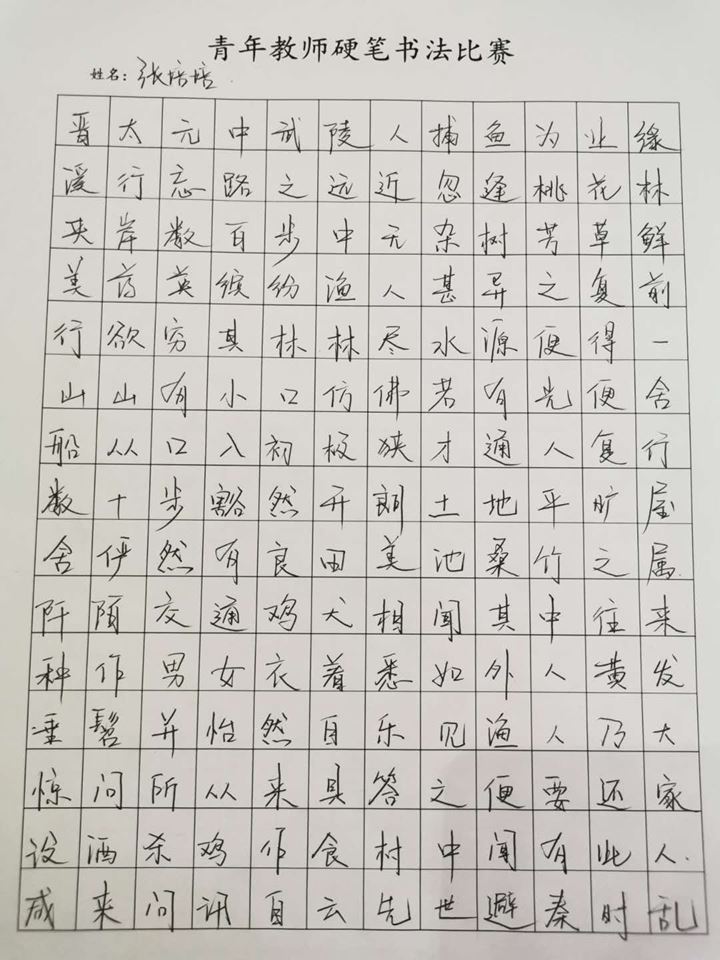 青年教师硬笔书法比赛
姓名：张培培
晋太元中武陵人捕鱼为业缘
溪行忘路之远近忽逢桃花林
夹岸数百步中无杂树芳草鲜
美落英缤纷渔人甚异之复前
行欲穷其林林尽水源便得一
山山有小口仿佛若有光便舍
船从口入初极狭才通人复行
数十步豁然开朗土地平旷屋
舍俨然有良田美池桑竹之属
阡陌交通鸡犬相闻其中往来
种作男女衣着悉如外人黄发
垂髫并怡然自乐见渔人乃大
惊问所从来具答之便要还家
设酒杀鸡作食村中闻有此人
咸来问讯自云先世避秦时乱